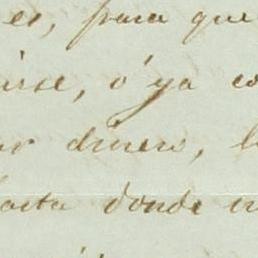 es, para que
irse, o' ya co
ar dinero, l
hasta donde